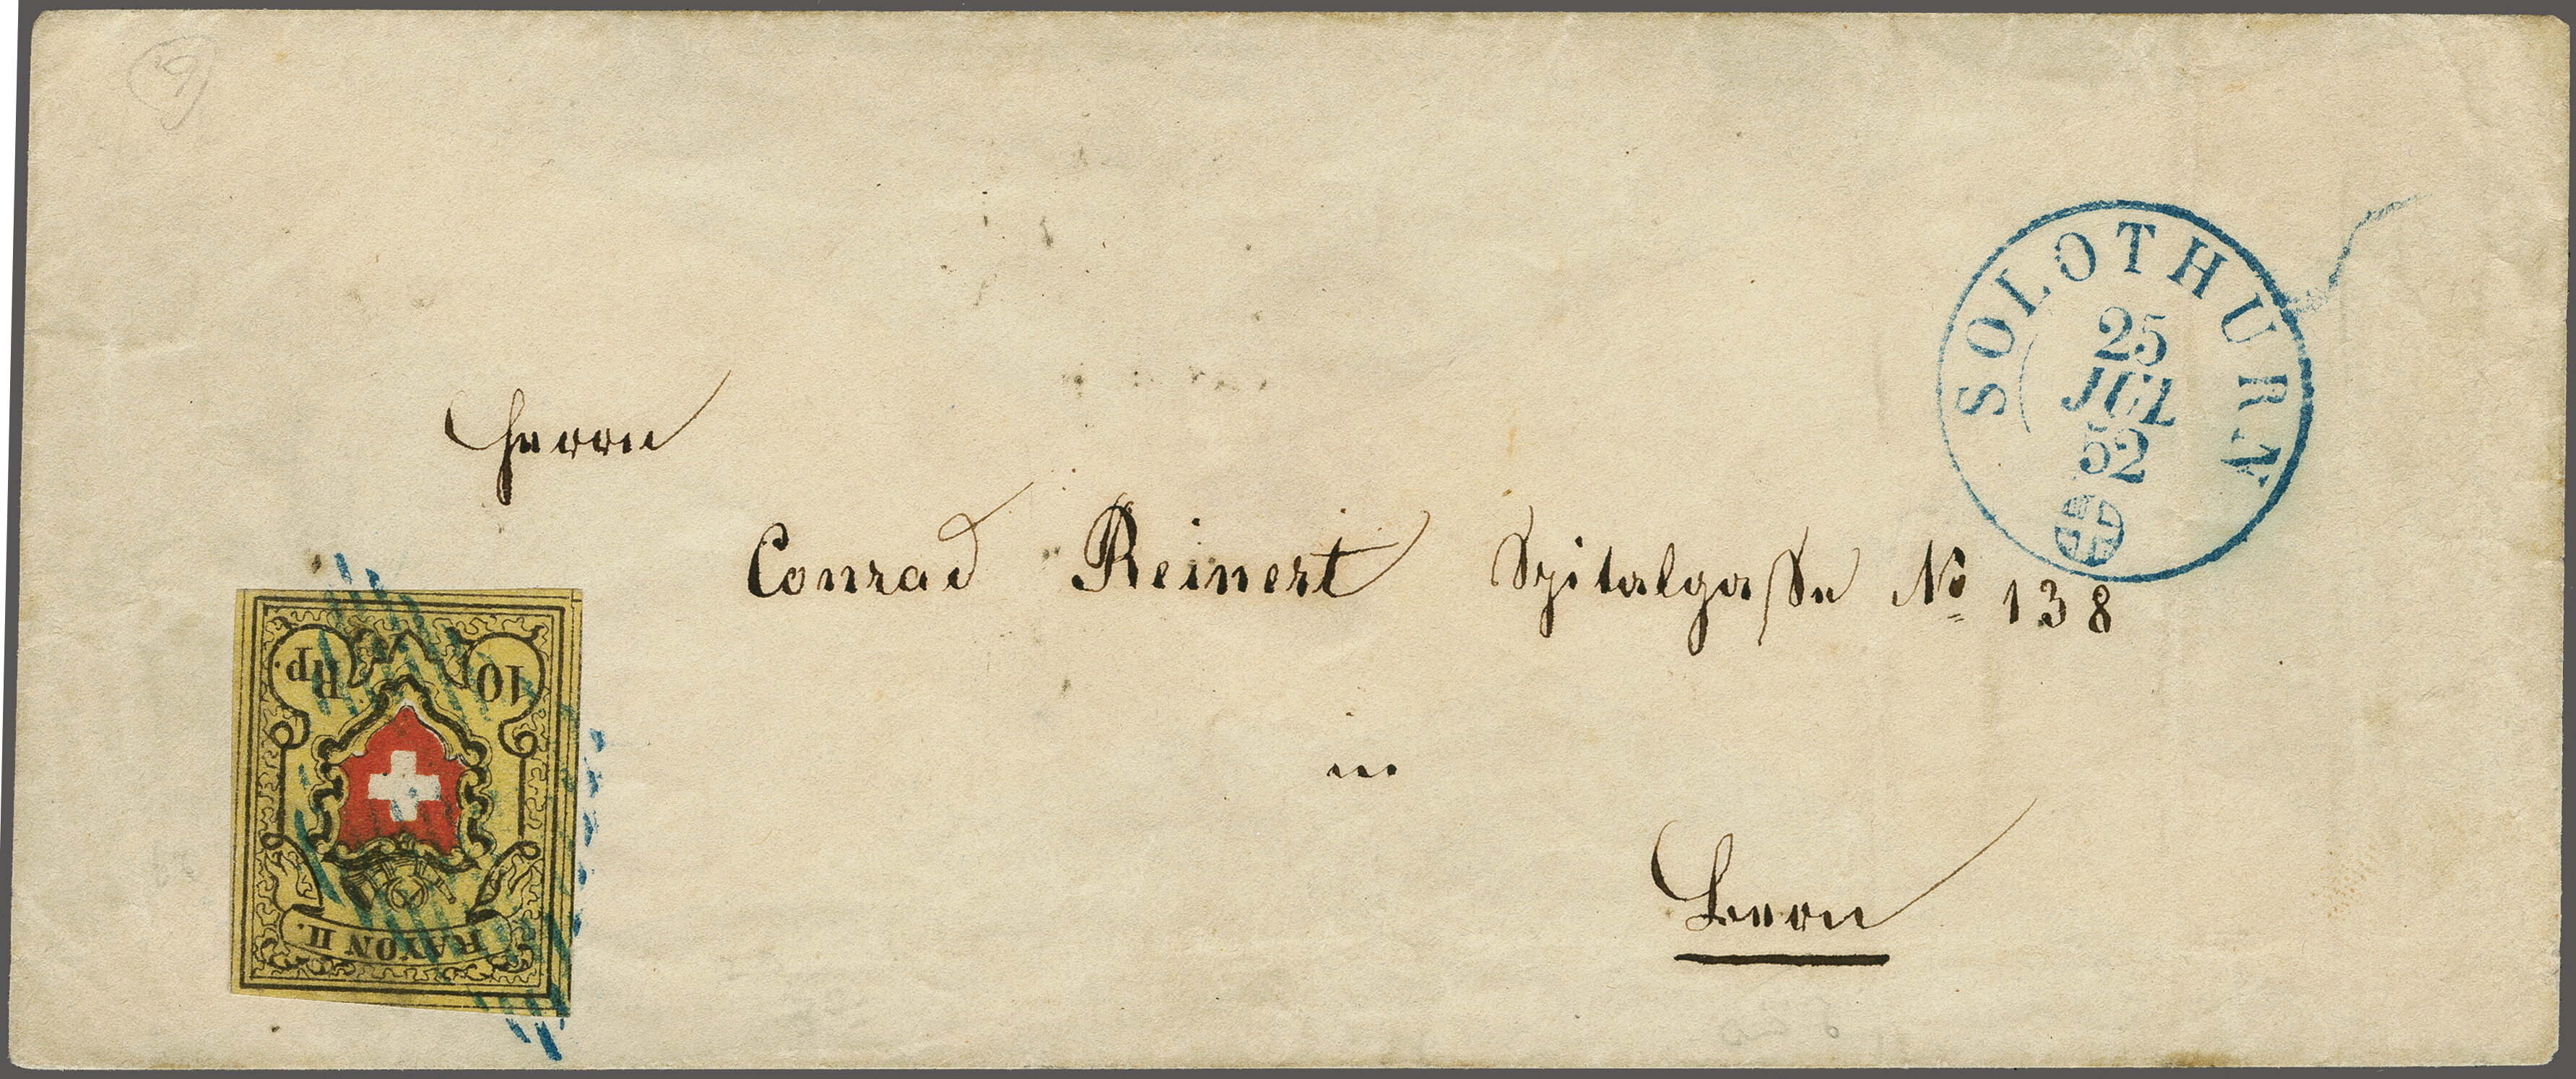 SOLOTHURN
25
JUL
52
Herrn
Conrad Reinert Spitalgasse No 138
in
Bern
10 Rp.
RAYON II.